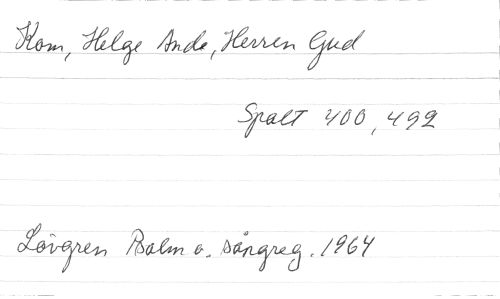 Kom, Helge Ande, Herren Gud
Spalt 400, 492
Lövgren Psalm o. sångreg. 1964